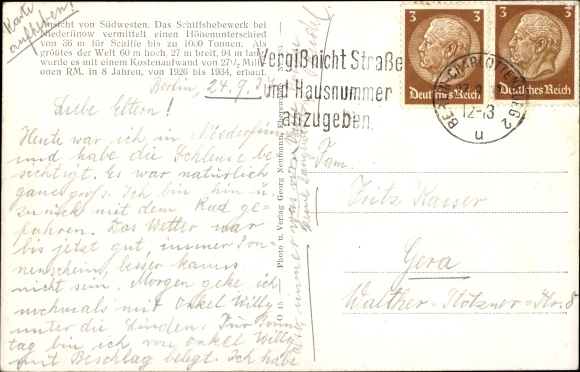 Karte
aufheben!
Ansicht von Südwesten. Das Schiffshebewerk bei
Niederfinow vermittelt einen Höhenunterschied
von 36 m für Schiffe bis zu 1000 Tonnen. Als
größtes der Welt 60 m hoch, 27 m breit, 94 m lang
wurde es mit einem Kostenaufwand von 27½ Mill
ionen RM. in 8 Jahren, von 1926 bis 1934, erbaut.
Berlin, 24.9.37
Liebe Eltern!
Heute war ich in Niederfinow
und habe die Schleuse be
sichtigt. Es war natürlich
ganz groß. Ich bin hin u.
zurück mit dem Rad ge-
fahren. Das Wetter war
bis jetzt gut, immer Son-
nenschein, besser kanns
nicht sein. Morgen gehe ich
nochmals mit Onkel Willy
unter die Linden. Für Sonn
tag bin ich von Onkel Willy
mit Beschlag belegt. Ich habe
immer was
O 15 Photo u. Verlag Georg Neumann, Eberswalde
Vergiß nicht Straße
und Hausnummer
anzugeben.
3 3
Deutsches Reich
3 3
Deutsches Reich
BERLIN-CHARLOTTENBURG 2
12-13
u
Fam.
Fritz Kaiser
Gera
Walther-Stötzner-Str. 8